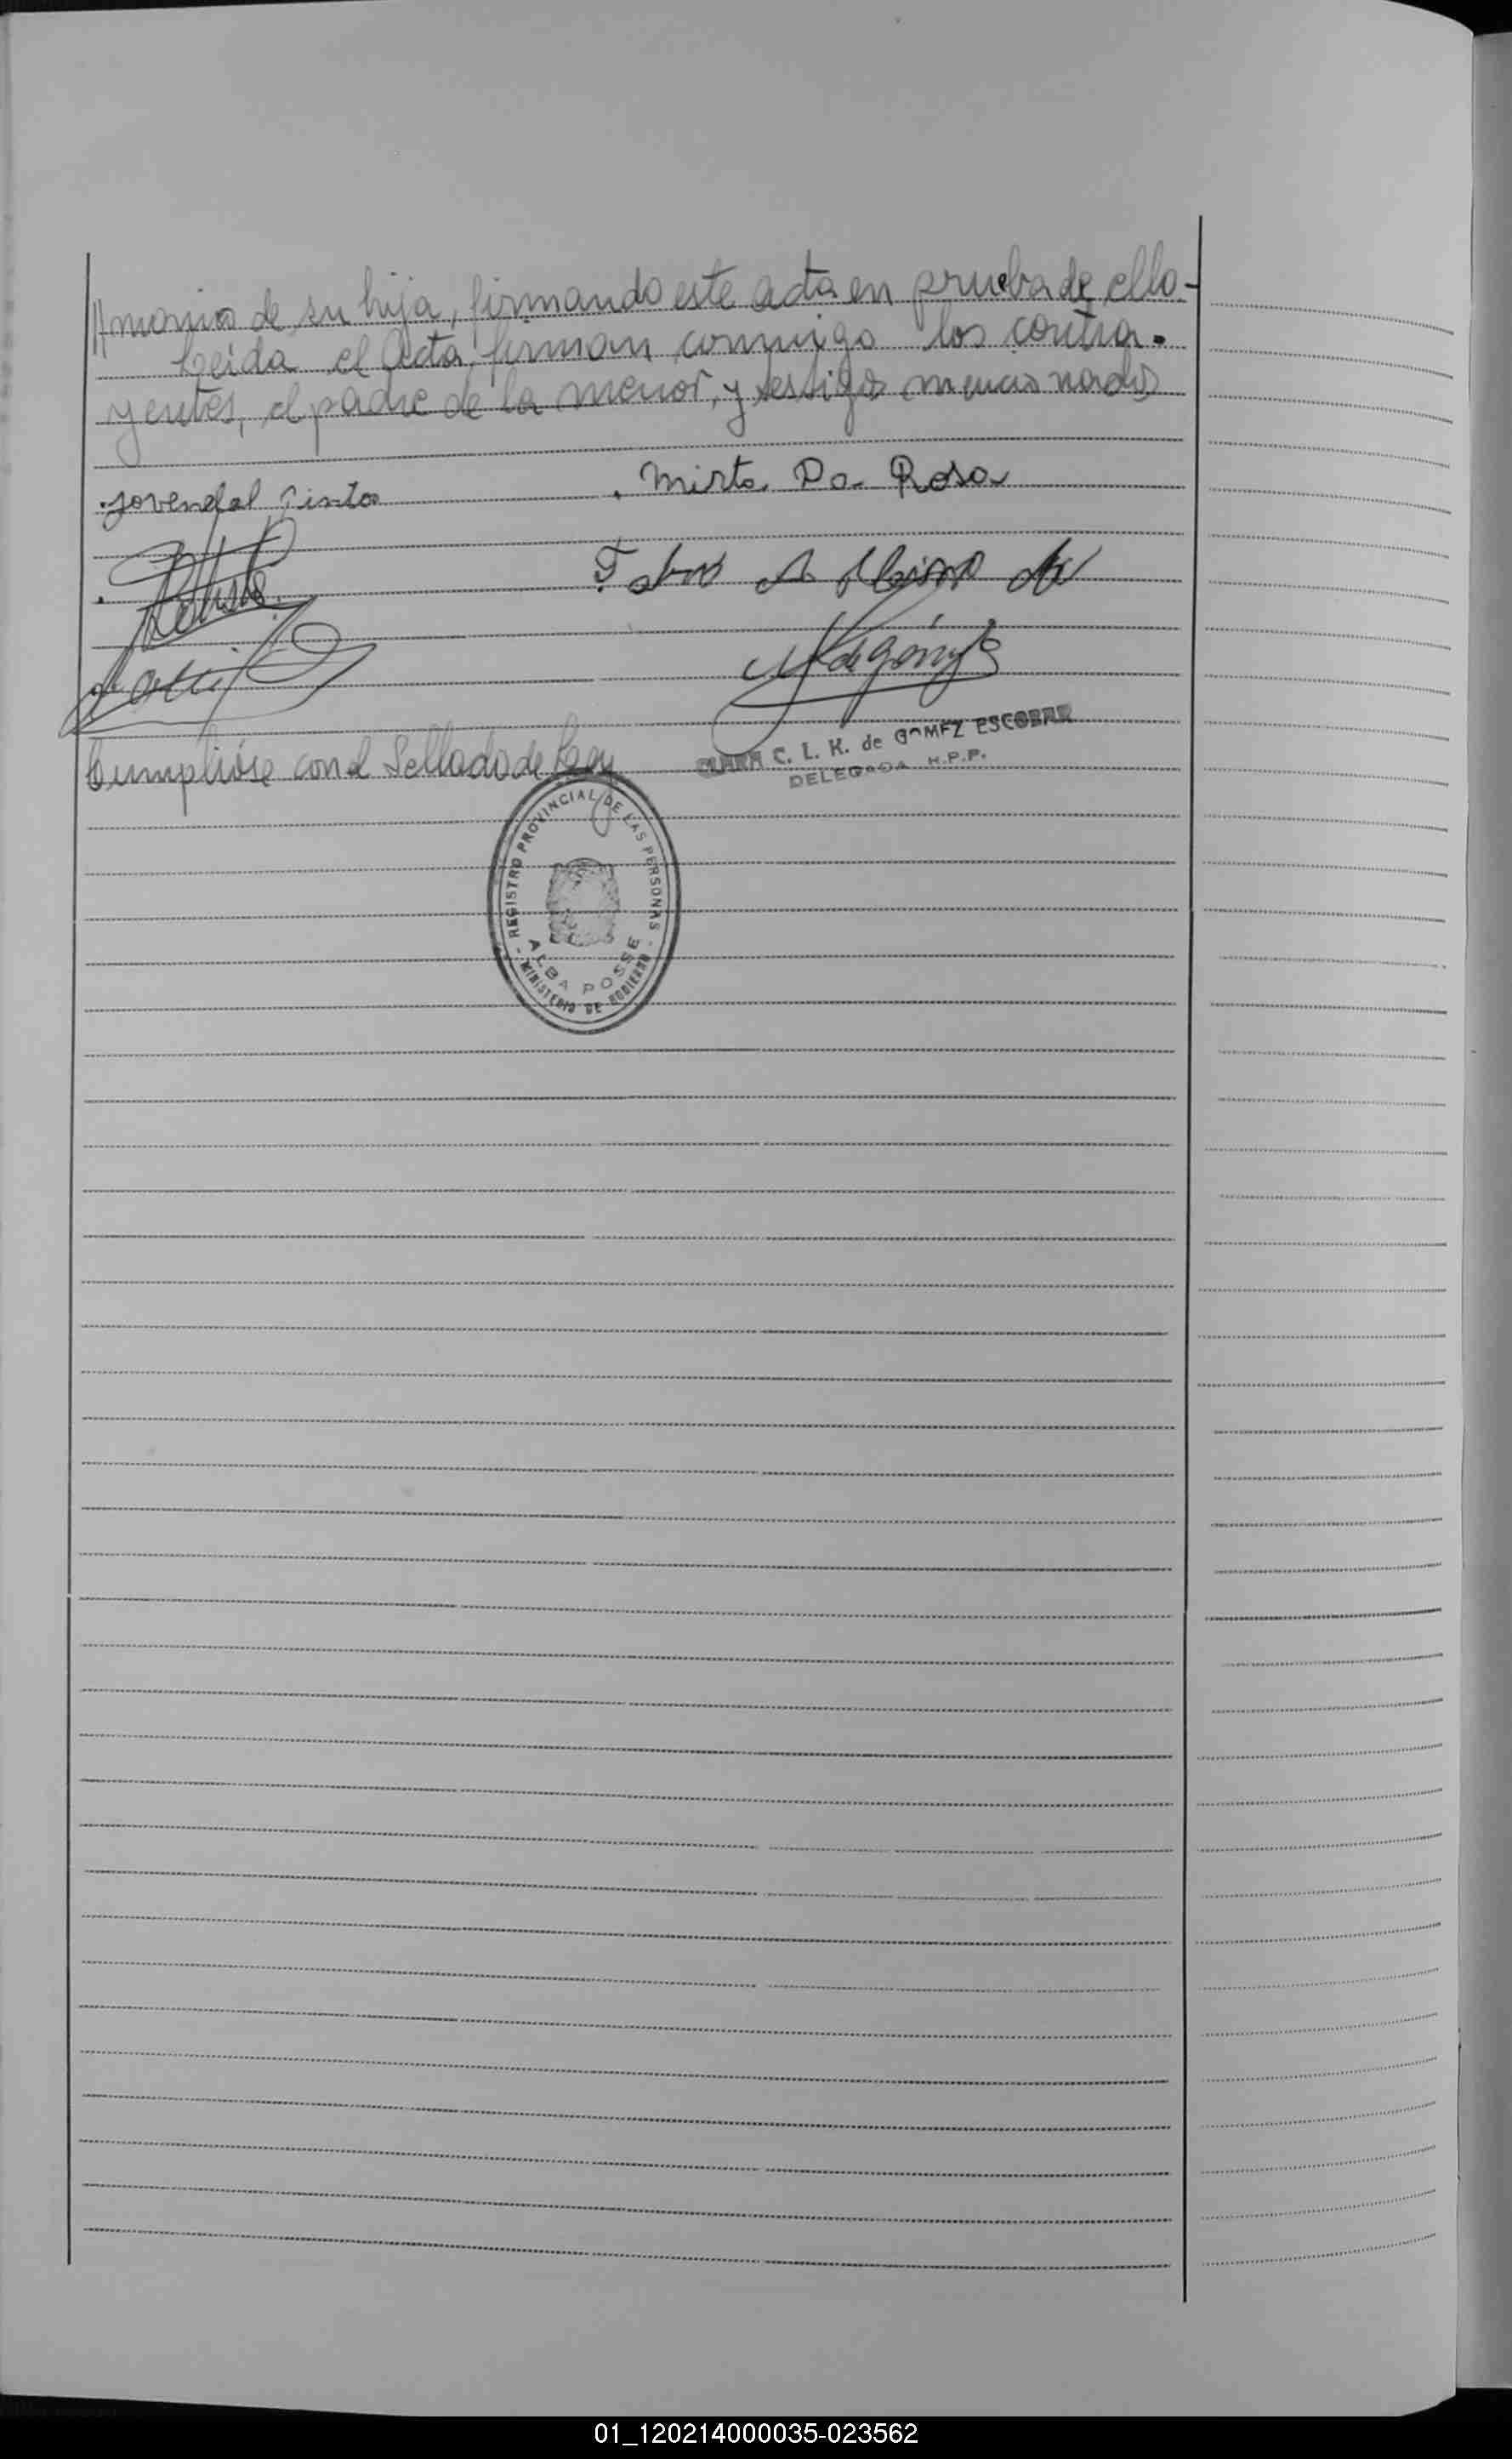 Amonio de su hija, firmando este acta en prueba de ello-
Leida el Acta, firman conmigo los contra-
yentes, el padre de la menor, y testigos mencionados
Jovendal Pinto
. Mirta Da Rosa
Cumplióse con el Sellado de Ley
CLARA C. L. K. de GOMEZ ESCOBAR
DELEGADA R.P.P.
REGISTRO PROVINCIAL DE LAS PERSONAS
ALBA POSSE
- MINISTERIO DE GOBIERNO -
01_120214000035-023562